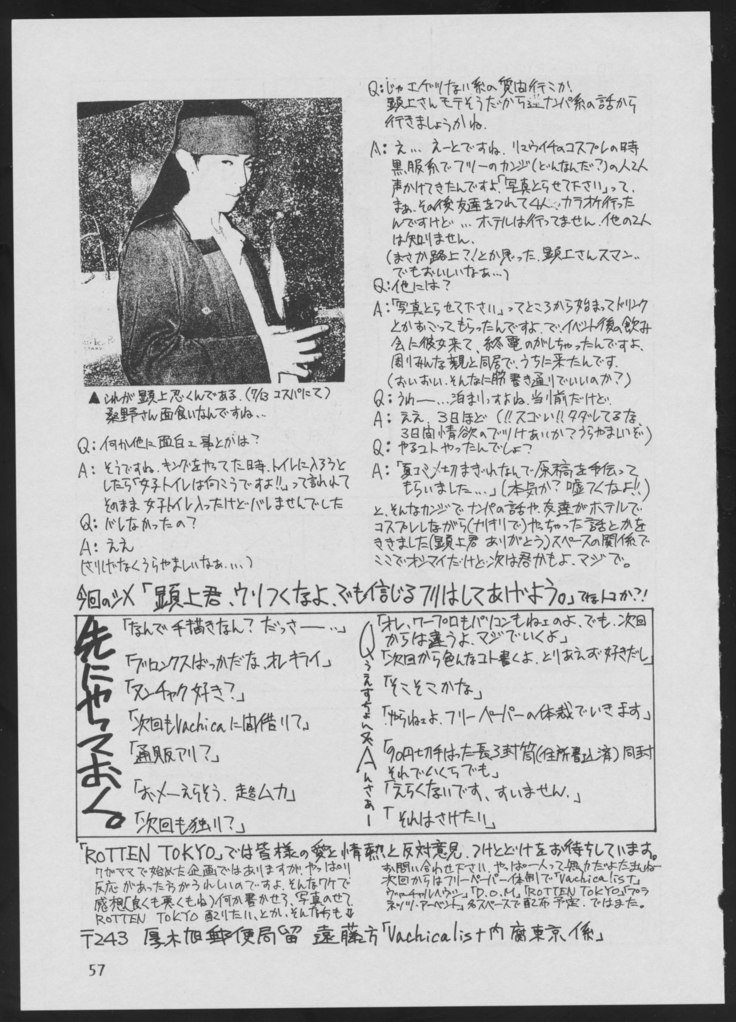 ▲これが顕上忍くんである.(7/13 コスパにて)
桑野さん面食いなんですね...
Q:何か他に面白い事とかは?
A:そうですね.キングをやってた日時.トイレに入ろうと
したら「女子トイレは向こうですよ!!」って言われて
そのまま女子トイレ入ったけどバレませんでした
Q:バレなかったの?
A:ええ
(さりげなくうらやましいなあ...)
Q:じゃエゲツない系の質問行こか.
顕上さんモテそうだから逆ナンパ系の話から
行きましょうかね.
A:え... えーとですね.リュウイチのコスプレの時
黒服系でフリーのカンジ(どんなんだ?)の人2人
声かけてきたんですよ「写真とらせて下さい」って、
まぁ、その後友達をつれて4人でカラオケ行った
んですけど...ホテルは行ってません.他の2人
は知りません.
(まさか路上?!とか思った.顕上さんスマン..
でもおいしいなあ...)
Q:他には?
A:「写真とらせて下さい」ってところから始まってドリンク
とかおごってもらったんですよ.で、イベント後の飲み
会に彼女来て、終電のがしちゃったんですよ、
周りみんな親と同居で、うちに来たんです.
(おいおい.そんなに筋書き通りでいいのか?)
Q:うわー...泊まりっすよね.当り前だけど.
A:ええ.3日ほど(!!スゴい!!タダレてるな、
3日間情欲のブツけあいか?うらやましいぞ)
Q:やるコトやったんでしょ?
A:「夏コミの〆切まぎわなんで原稿を手伝って
もらいました...」(本気か?嘘つくなよ!!)
と、そんなカンジでナンパの話や、友達がホテルで
コスプレしながら(ナリキリで)やっちゃった話とかを
ききました(顕上君ありがとう)スペースの関係で
ここでオシマイだけど次は君かもよ.マジで。
今回のシメ「顕上君、ウソつくなよ、でも信じるフリはしてあげよう。」てなトコか?!
先にやっておく。
「なんで手描きなん?だっさー...」
「ブロンクスばっかだな、オレキライ」
「ヌンチャク好き?」
「次回もVachicaに間借りて」
「通販アリ?」
「おメーえらそう、超ムカ」
「次回も独り?」
Qうえすちょん&Aんさぁー
「オレ、ワープロもパソコンもねェのよ、でも、次回
からは違うよ、マジでいくよ」
「次回から色んなコト書くよ、とりあえず好きだし」
「そこそこかな」
「やらねェよ、フリーペーパーの体裁でいきます」
「90円切手はった長3封筒(住所書込済)同封
それでいくらでも」
「えらくないです、すいません.」
「それはさけたい」
「ROTTEN TOKYO」では皆様の愛と情熱と反対意見、つけとどけをお待ちしています。
ワガママで始めた企画ではありますが、やっぱり
反応があったらうれしいのですよ、そんなワケで
感想(良くも悪くもね)何か書かせろ、写真のせて、
ROTTEN TOKYO配りたい、とか、そんな方も
お問い合わせ下さい、やっぱ一人って無力だよだよね
次回からはフリーペーパー体制で「Vachicalist」
「D.O.M」「ROTTEN TOKYO」
各スペースで配布予定.ではまた。
〒243 厚木旭郵便局留 遠藤方「Vachicalist内腐東京係」
57